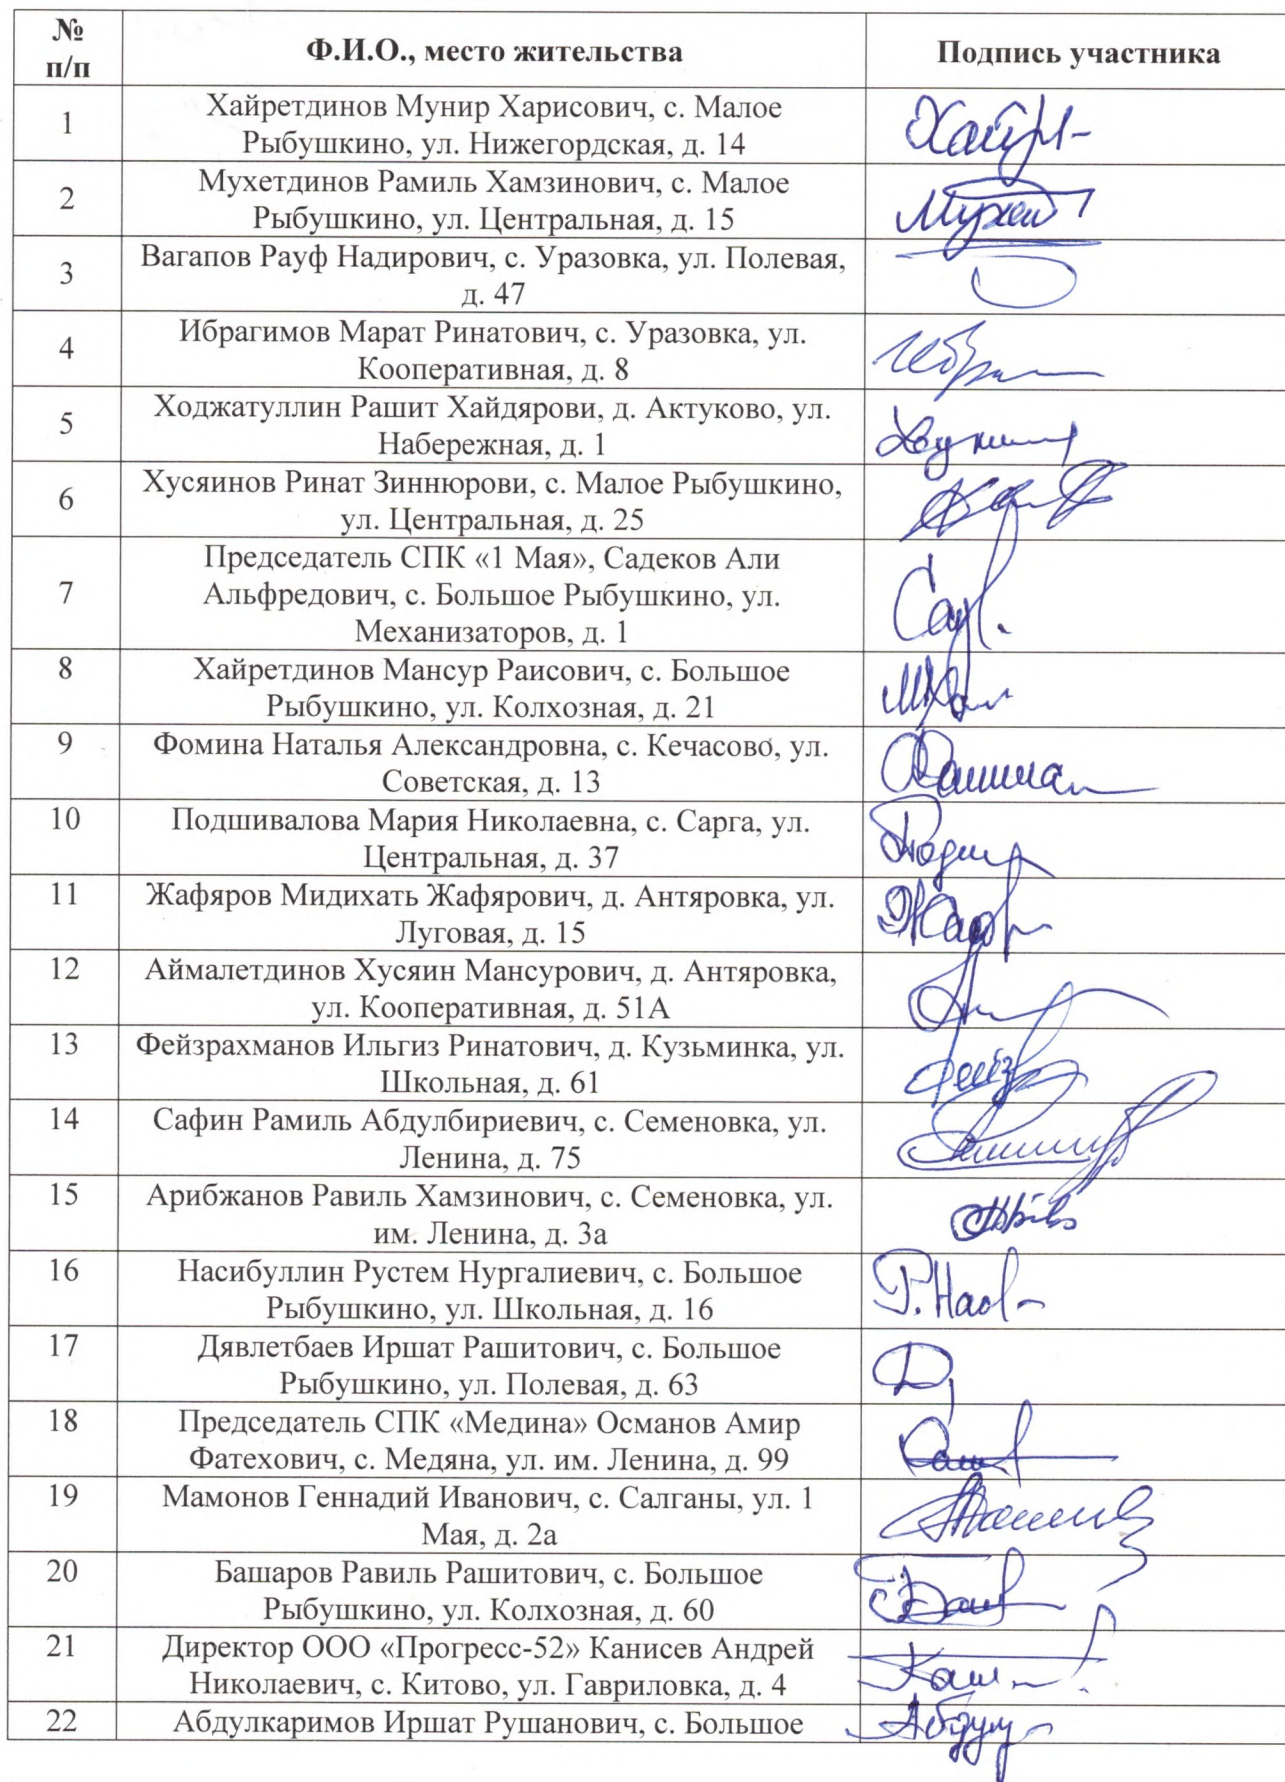 № п/п Ф.И.О., место жительства Подпись участника
1 Хайретдинов Мунир Харисович, с. Малое
Рыбушкино, ул. Нижегордская, д. 14
2 Мухетдинов Рамиль Хамзинович, с. Малое
Рыбушкино, ул. Центральная, д. 15
3 Вагапов Рауф Надирович, с. Уразовка, ул. Полевая,
д. 47
4 Ибрагимов Марат Ринатович, с. Уразовка, ул.
Кооперативная, д. 8
5 Ходжатуллин Рашит Хайдярови, д. Актуково, ул.
Набережная, д. 1
6 Хусяинов Ринат Зиннюрови, с. Малое Рыбушкино,
ул. Центральная, д. 25
7 Председатель СПК «1 Мая», Садеков Али
Альфредович, с. Большое Рыбушкино, ул.
Механизаторов, д. 1
8 Хайретдинов Мансур Раисович, с. Большое
Рыбушкино, ул. Колхозная, д. 21
9 Фомина Наталья Александровна, с. Кечасово, ул.
Советская, д. 13
10 Подшивалова Мария Николаевна, с. Сарга, ул.
Центральная, д. 37
11 Жафяров Мидихать Жафярович, д. Антяровка, ул.
Луговая, д. 15
12 Аймалетдинов Хусяин Мансурович, д. Антяровка,
ул. Кооперативная, д. 51А
13 Фейзрахманов Ильгиз Ринатович, д. Кузьминка, ул.
Школьная, д. 61
14 Сафин Рамиль Абдулбириевич, с. Семеновка, ул.
Ленина, д. 75
15 Арибжанов Равиль Хамзинович, с. Семеновка, ул.
им. Ленина, д. 3а
16 Насибуллин Рустем Нургалиевич, с. Большое
Рыбушкино, ул. Школьная, д. 16
17 Дявлетбаев Иршат Рашитович, с. Большое
Рыбушкино, ул. Полевая, д. 63
18 Председатель СПК «Медина» Османов Амир
Фатехович, с. Медяна, ул. им. Ленина, д. 99
19 Мамонов Геннадий Иванович, с. Салганы, ул. 1
Мая, д. 2а
20 Башаров Равиль Рашитович, с. Большое
Рыбушкино, ул. Колхозная, д. 60
21 Директор ООО «Прогресс-52» Канисев Андрей
Николаевич, с. Китово, ул. Гавриловка, д. 4
22 Абдулкаримов Иршат Рушанович, с. Большое